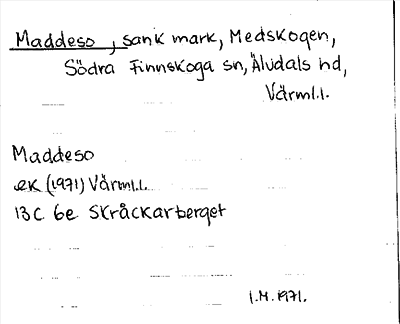 Maddeso, sank mark, Medskogen,
Södra Finnskoga sn, Älvdals hd,
Värml.l.
Maddeso
ek (1971) Värml.l.
13C 6e Skråckarberget
I.M. 1971.